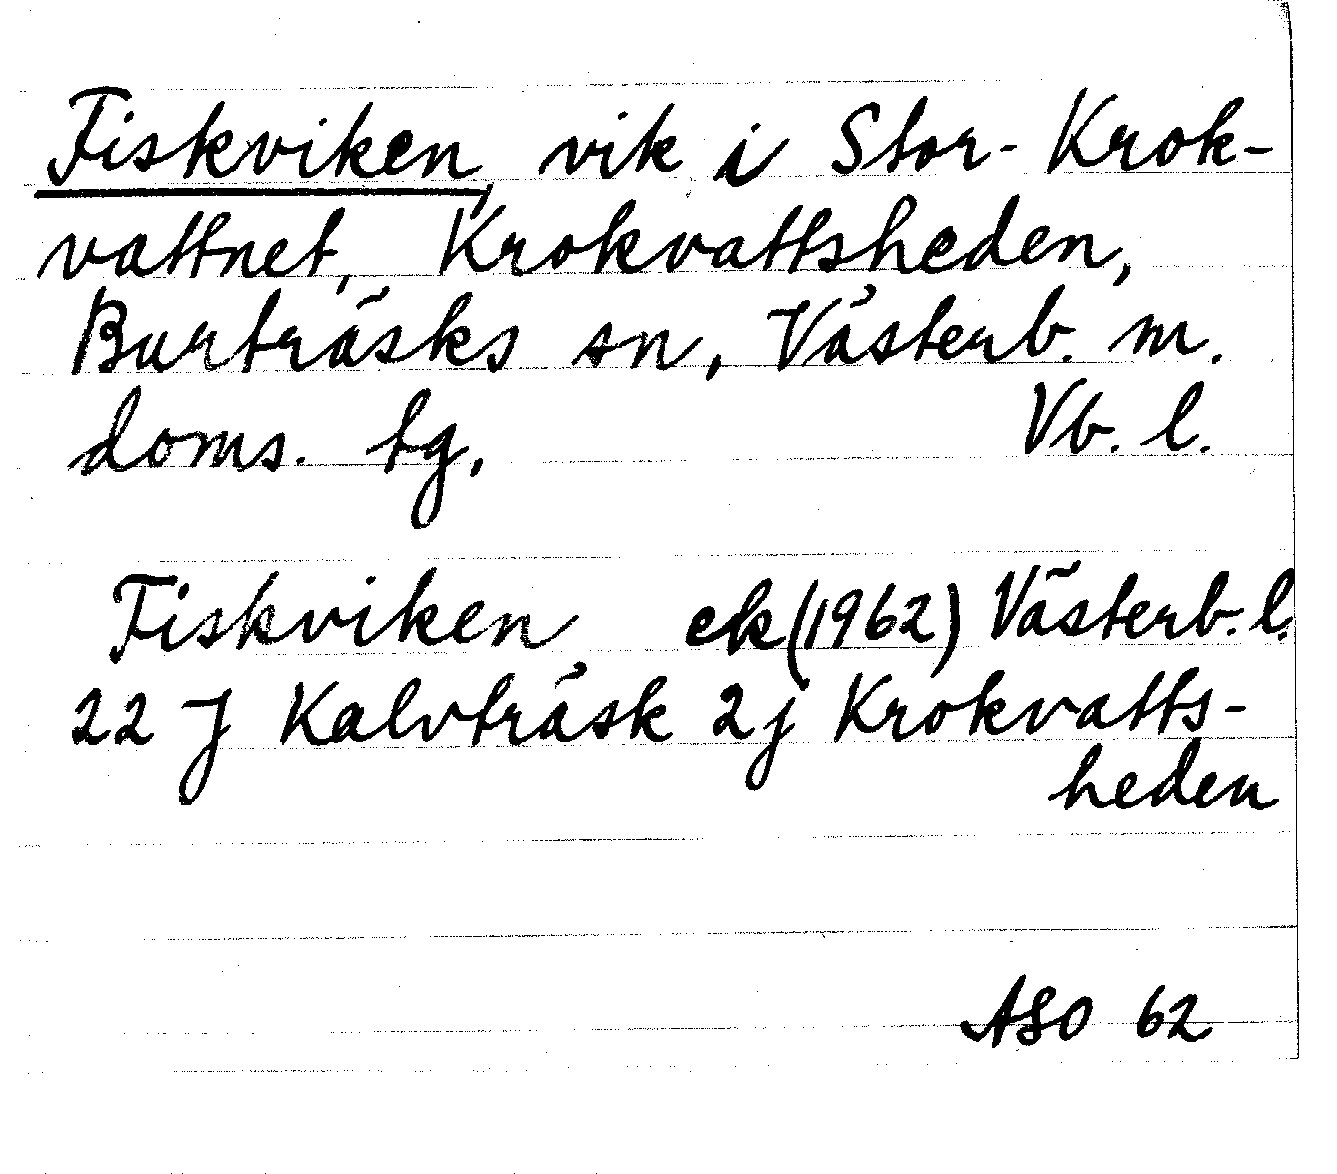 Fiskviken, vik i Stor-Krok-
vattnet, Krokvattsheden,
Burträsks sn, Västerb. m.
doms. tg. Vb. l.
Fiskviken ek (1962) Västerb. l.
22 J Kalvträsk 2j Krokvatts-
heden
ASO 62